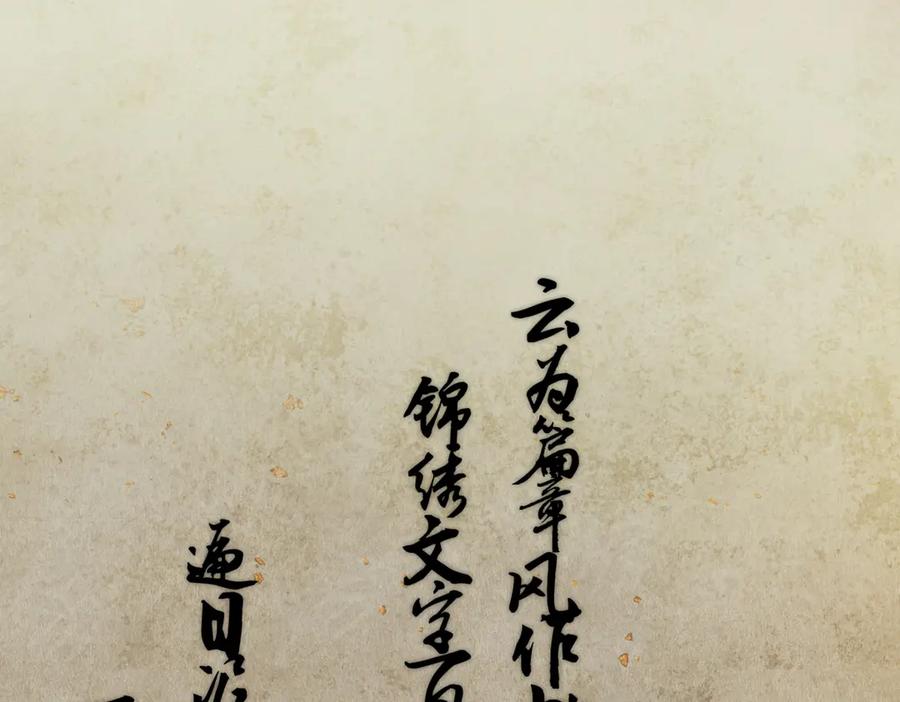 云为篇章风作
锦绣文字
遍日